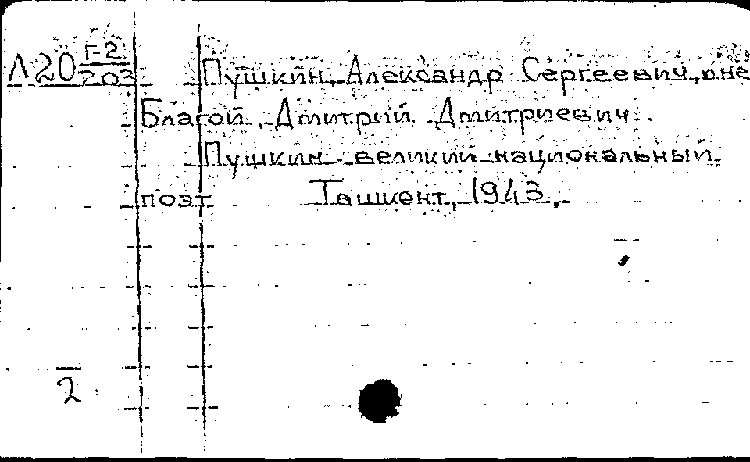 Л20 Г-2/203
Пушкин, Александр Сергеевич, о не
Благой, Дмитрий Дмитриевич.
Пушкин великий национальный
поэт Ташкент, 1943.
2